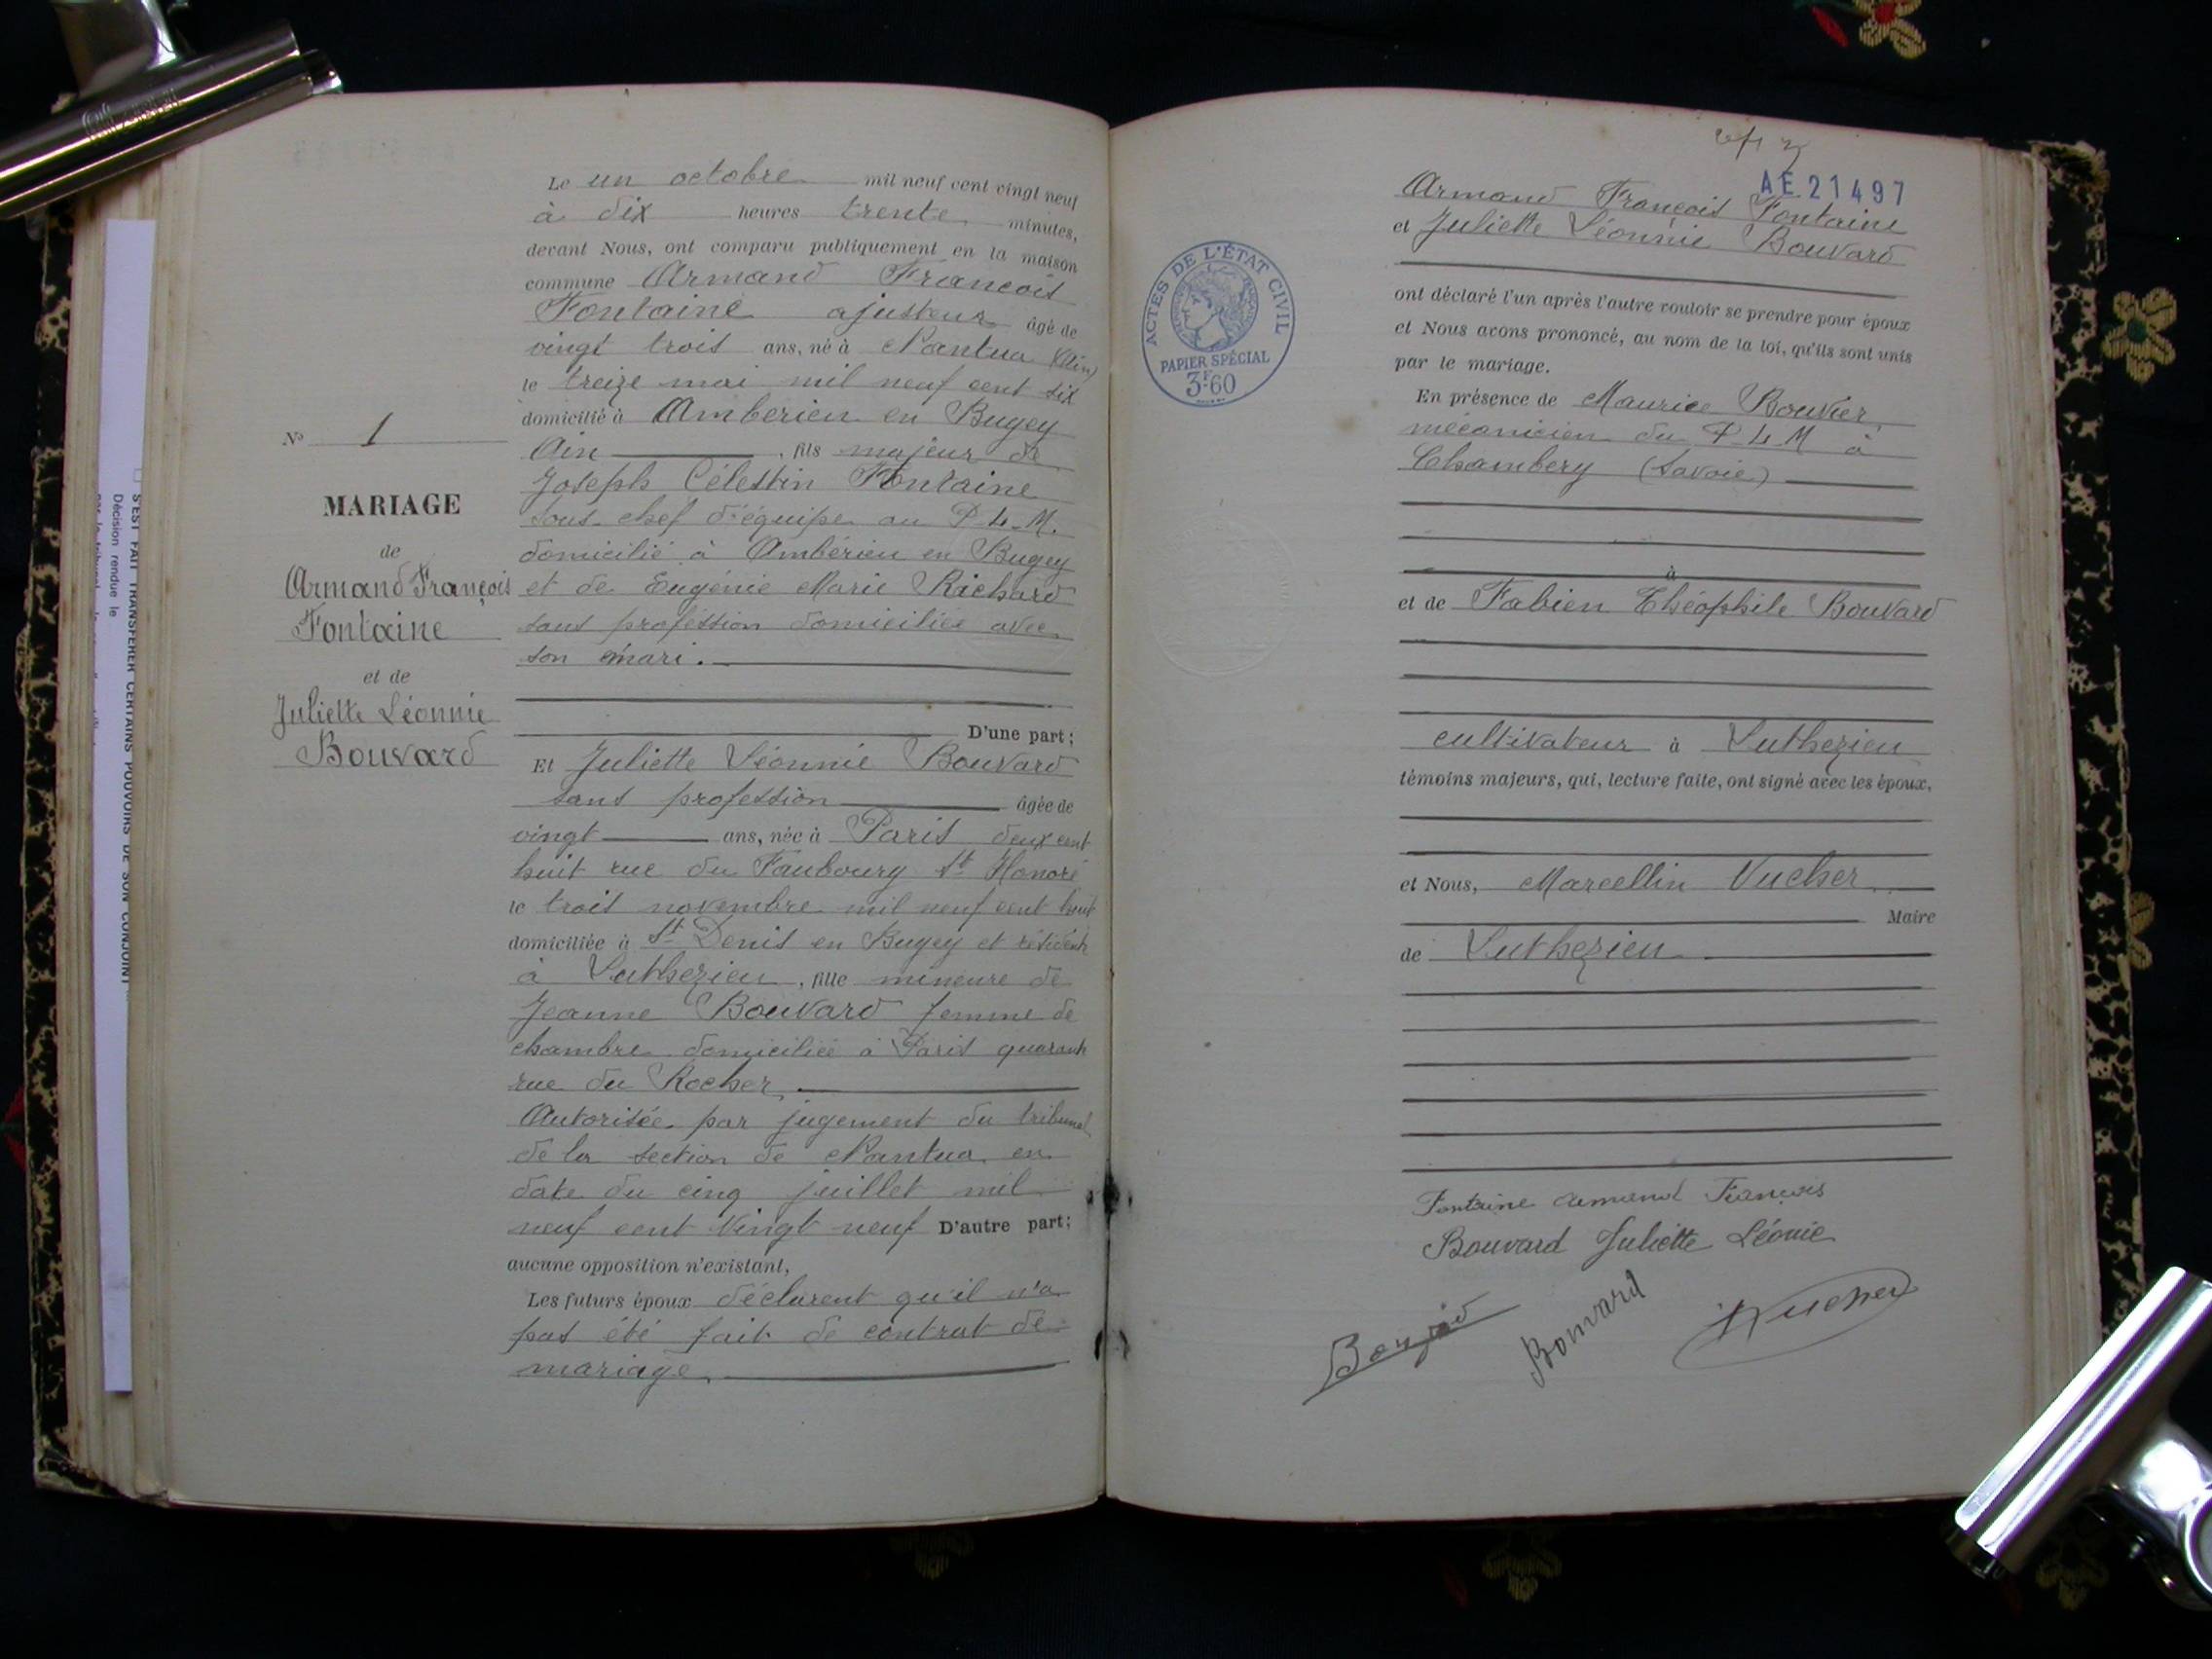 N° 1
MARIAGE
de
Armand François
Fontaine
et de
Juliette Léonnie
Bouvard
Le un octobre mil neuf cent vingt neuf
à dix heures trente minutes,
devant Nous, ont comparu publiquement en la maison
commune Armand François
Fontaine ajusteur âgé de
vingt trois ans, né à Nantua (Ain)
le treize mai mil neuf cent six
domicilié à Amberieu en Bugey
Ain , fils majeur de
Joseph Célestin Fontaine
sous-chef d'équipe au P-L-M.
domicilié à Ambérieu en Bugey
et de Eugénie Marie Richard
sans profession domiciliée avec
son mari.
D'une part;
Et Juliette Léonnie Bouvard
sans profession âgée de
vingt ans, née à Paris deux cent
huit rue du Faubourg St Honoré
le trois novembre mil neuf cent huit
domiciliée à St Denis en Bugey et résidente
à Luthezieu, fille mineure de
Jeanne Bouvard femme de
chambre domiciliée à Paris quarante
rue du Rocher
Autorisée par jugement du tribunal
de la section de Nantua en
date du cinq juillet mil
neuf cent vingt neuf D'autre part;
aucune opposition n'existant,
Les futurs époux déclarent qu'il n'a
pas été fait de contrat de
mariage.
S'EST FAIT TRANSFÉRER CERTAINS POUVOIRS DE SON CONJOINT
Décision rendue le
AE 21497
Armand François Fontaine
et Juliette Léonnie Bouvard
ACTES DE L'ÉTAT CIVIL
PAPIER SPÉCIAL
3F60
ont déclaré l'un après l'autre vouloir se prendre pour époux
et Nous avons prononcé, au nom de la loi, qu'ils sont unis
par le mariage.
En présence de Maurice Bouvier,
mécanicien du P-L-M à
Chambery (Savoie)
à
et de Fabien Théophile Bouvard
cultivateur à Luthezieu
témoins majeurs, qui, lecture faite, ont signé avec les époux,
et Nous, Marcellin Vucher
Maire
de Luthezieu
Fontaine Armand François
Bouvard Juliette Léonie
Bouvard
Vucher